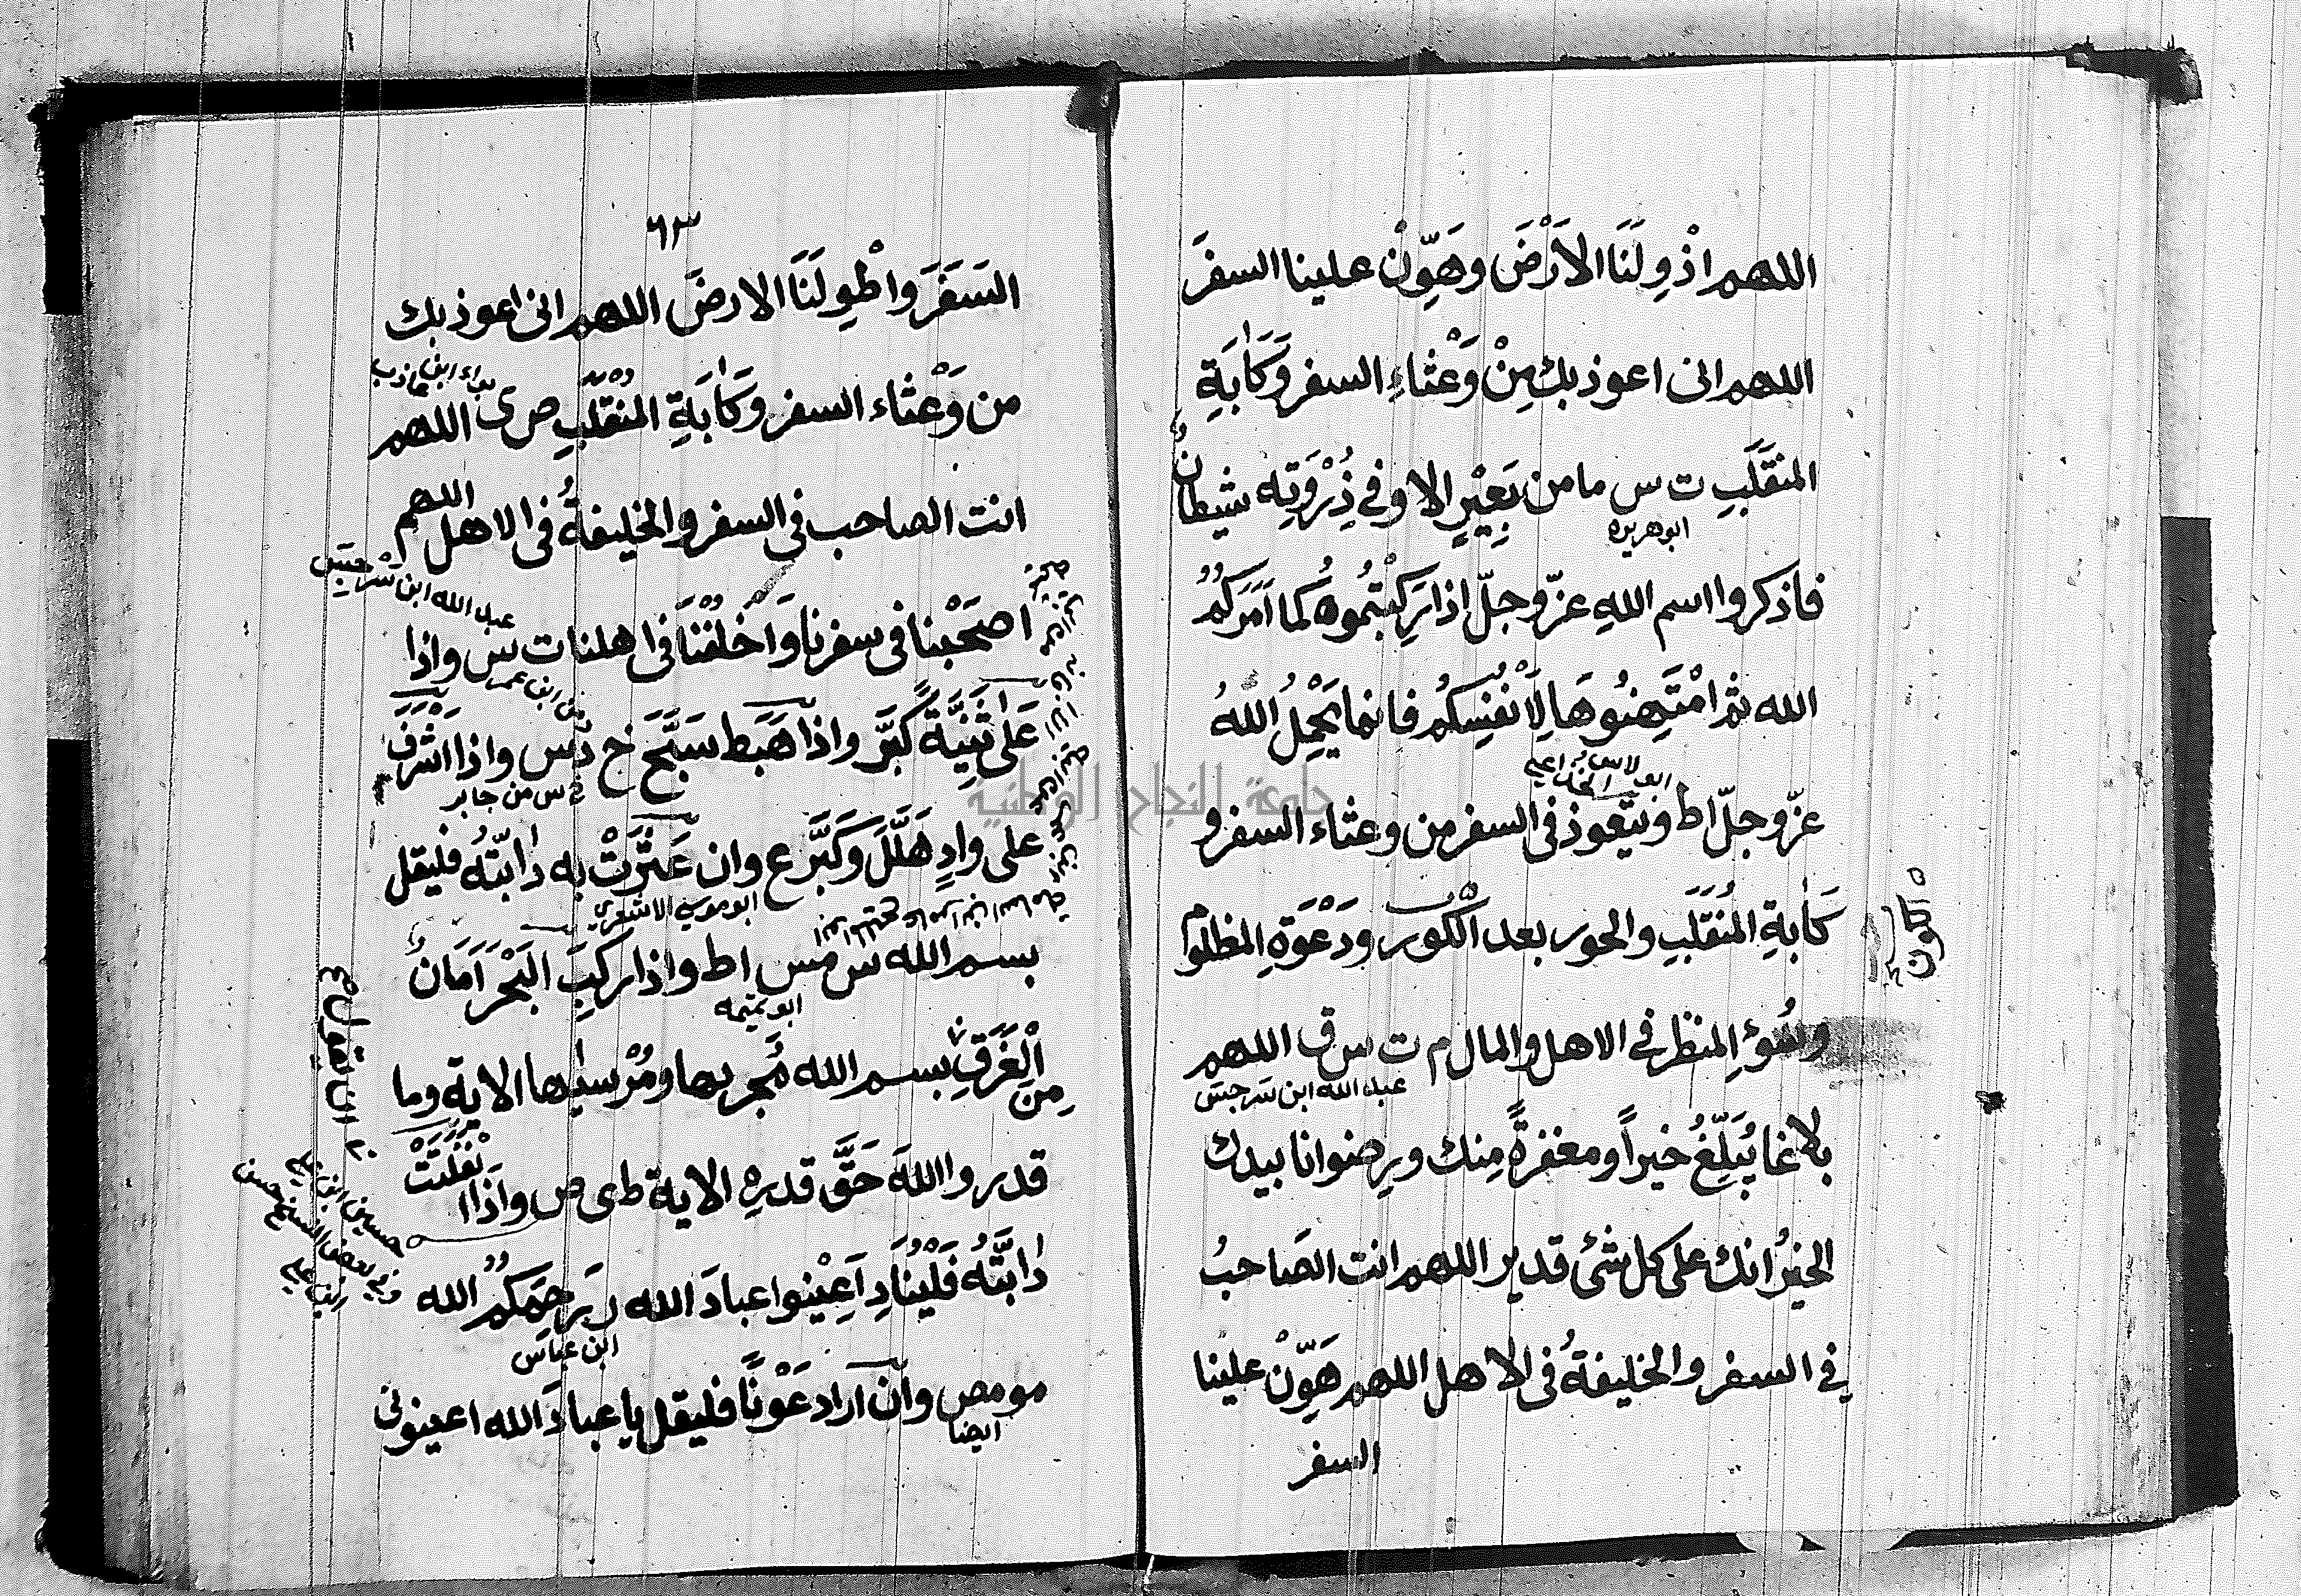 اللهم اذْوِ لَنَا الاَرْضَ وهَوِّنْ علينا السفرَ
اللهم انى اعوذ بك مِنْ وَعْثاءِ السفر وَكَأبَةِ
المنقَلَبِ ت س ما من بَعِيْرٍ الا وفي ذُِرْوَتِه شيطانٌ
ابو هريره
فاذكروا اسم اللهِ عزّ وجلّ اذا رَكِبْتُمُوه كما اَمَرَكُمُ
الله ثم امْتَهِنُوهَا لِاَنْفُسِكُم فانما يَحْمِلُ اللهُ
عزّ وجلّ اط ويتعوذ فى السفر من وعثاء السفر و
كَأبةِ المُنْقَلَبِ والحور بعد الكَوْر ودَعْوَةِ المظلوم
الكون
وسُوْءِ المنظر في الاهل والمال م ت س ق اللهم
عبد الله ابن سرجس
بلاغا يُبَلِّغُ خيراً ومغفرةً مِنك ورِضوانا بيدك
الخيرُ انك على كل شئ قدير اللهم انت الصَاحبُ
في السفر والخليفةُ فى الاهل اللهم هَوِّنْ علينا
السفر
٦٣
السَفَرَ واطْوِ لَنَا الارضَ اللهم انى اعوذ بك
من وَعْثاء السفر وكَأبَةِ المنقَلَبِ ص ى اللهم
براء ابن عازب
انت الصاحب فى السفر والخليفةُ فى الاهل اللهم
اصحَبْنا فى سفرنا وَاخْلُفْنَا فى اهلنا ت س واذا
عبد الله ابن سرجس
عَلَى ثَنِيَّةً كَبَّرَ واذا هَبَط سَبَّحَ خ د س واذا اَشْرَفَ
س من جابر
على وادٍ هَلَّلَ وَكَبَّرَ ع وان عَثَرَتْ به دابّتُه فليقل
ابو موسى الاشعري
بسم الله س مس اط واذا ركِبَ البَحْرَ اَمَانٌ
ابو تميمه
مِنَ الْغَرَقِ بسم الله مَجريها ومُرْسيها الاية وما
ان يقول
قدروا اللهَ حَقَّ قدرِه الاية ط ى ص واذا انفَلَتَتْ
دابَّتُهُ فَلْيُنَادِ اَعِيْنوا عبادَ الله ر يَرحَمكُمُ الله
حسين ابن علي
وفي بعض النسخ حسن
ابن علي
ابن عباس
مو مص وان اراد عَوْنًا فليقل يا عبادَ الله اعينونى
ايضا
جامعة النجاح الوطنية